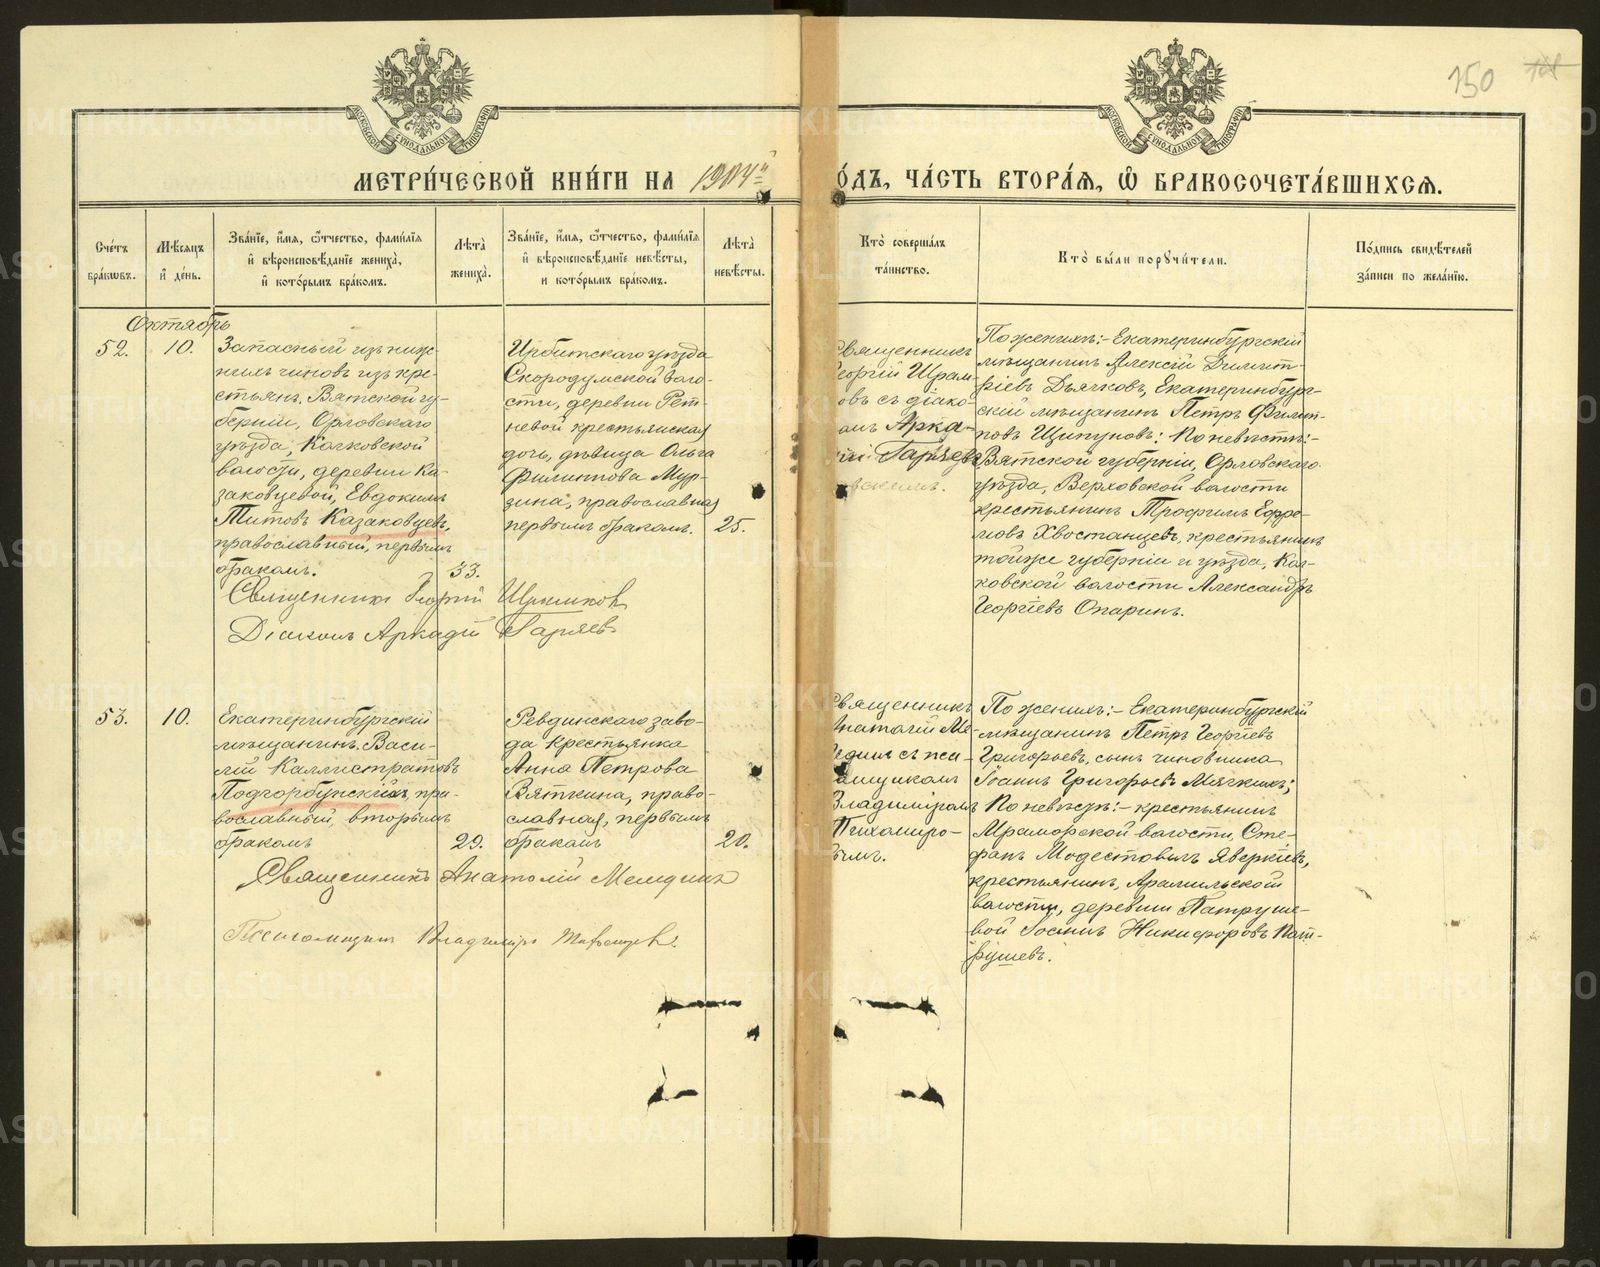 150
МЕТРИ́ЧЕСКОЙ КНИ́ГИ НА 1904й
О́ДЪ, ЧА́СТЬ ВТОРА́Я, Ѽ БРАКОСОЧЕТА́ВШИХСЯ.
Сче́тъ бра́кѡвъ.
Мѣ́сяцъ и҆ де́нь.
Зва́нїе, и҆́мя, ѻ҆́тчество, фами́лїя и҆ вѣроисповѣ́данїе жениха̀, и҆ кото́рымъ бра́комъ.
Лѣта̀ жениха̀.
Зва́нїе, и҆́мя, ѻ҆́тчество, фами́лїя и҆ вѣроисповѣ́данїе невѣ́сты, и кото́рымъ бра́комъ.
Лѣта̀ невѣ́сты.
Кто̀ соверша́лъ та́инство.
Кто̀ бы́ли порꙋчи́тели.
По́дпись свидѣ́телей за́писи по жела́нїю.
Октябрь
52.
10.
Запасный изъ ниж-
нихъ чиновъ изъ кре-
стьянъ Вятской гу-
берніи, Орловскаго
уѣзда, Качковской
волости, деревни Ка-
заковцевой, Евдокимъ
Титовъ Казаковцевъ,
православный, первымъ
бракомъ.
33.
Ирбитскаго уѣзда
Скородумской воло-
сти, деревни Рет-
невой крестьянская
дочь, дѣвица Ольга
Филиппова Мур-
зина, православная
первымъ бракомъ.
25.
Священникъ
Георгій Шрам-
овъ съ діако-
омъ Арка-
іи Гаряев
По женихѣ:- Екатеринбургскій
мѣщанинъ Алексѣй Димит-
ріевъ Дьячковъ, Екатеринбург-
скій мѣщанинъ Петръ Филип-
повъ Щипуновъ; По невѣстѣ:-
Вятской губерніи, Орловскаго
уѣзда, Верховской волости
крестьянинъ Трофимъ Ефре-
мовъ Хвостанцевъ, крестьянинъ
той же губерніи и уѣзда, Кач-
ковской волости Александръ
Георгіевъ Опаринъ.
Священникъ Георгій
Діаконъ Аркадій Гаряев
53.
10.
Екатеринбургскій
мѣщанинъ Васи-
лій Каллистратовъ
Подгорбунскій, пра-
вославный, вторымъ
бракомъ
29.
Ревдинскаго заво-
да крестьянка
Анна Петрова
Вяткина, право-
славная, первымъ
бракомъ
20.
Священникъ
Анатолій Ме-
единъ съ пса-
омщикомъ
Владиміромъ
Тихомиро-
ымъ.
По женихѣ:- Екатеринбургскій
мѣщанинъ Петръ Георгіевъ
Григорьевъ, сынъ чиновника
Іоаннъ Григорьевъ Мягкихъ;
По невѣстѣ:- крестьянинъ
Мраморской волости, Сте-
фанъ Модестовъ Яверкіевъ,
крестьянинъ, Арамильской
волости, деревни Патруше-
вой Іоаннъ Никифоровъ Пат-
рушевъ.
Священникъ Анатолій
Псаломщикъ Владиміръ